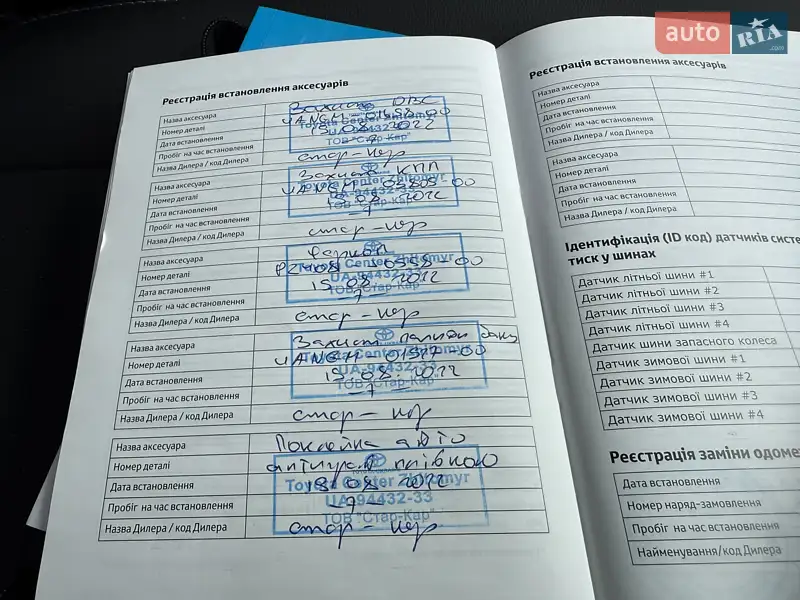 auto RIA .com
Реєстрація встановлення аксесуарів
Назва аксесуара Захист ДВС
Номер деталі
Дата встановлення 15.08.2022
Пробіг на час встановлення
Назва Дилера / код Дилера стар-кар
Toyota Center Zhitomyr
ТОВ "Стар-Кар"
Назва аксесуара Захист КПП
Номер деталі
Дата встановлення 15.08.2022
Пробіг на час встановлення -7-
Назва Дилера / код Дилера стар-кар
Toyota Center Zhitomyr
UA-94432-33
ТОВ "Стар-Кар"
Назва аксесуара Фаркоп
Номер деталі
Дата встановлення 15.08.2022
Пробіг на час встановлення -7-
Назва Дилера / код Дилера стар-кар
Toyota Center Zhitomyr
UA-94432-33
ТОВ "Стар-Кар"
Назва аксесуара Захист паливн баку
Номер деталі UANGM-01577-00
Дата встановлення 15.08.2022
Пробіг на час встановлення -7-
Назва Дилера / код Дилера стар-кар
Toyota Center Zhitomyr
UA-94432-33
ТОВ "Стар-Кар"
Назва аксесуара Поклейка авто
Номер деталі антиграв плівкою
Дата встановлення 15.08.2022
Пробіг на час встановлення -7-
Назва Дилера / код Дилера стар-кар
Toyota Center Zhitomyr
UA-94432-33
ТОВ "Стар-Кар"
Реєстрація встановлення аксесуарів
Назва аксесуара
Номер деталі
Дата встановлення
Пробіг на час встановлення
Назва Дилера / код Дилера
Назва аксесуара
Номер деталі
Дата встановлення
Пробіг на час встановлення
Назва Дилера / код Дилера
Ідентифікація (ID код) датчиків систе
тиск у шинах
Датчик літньої шини #1
Датчик літньої шини #2
Датчик літньої шини #3
Датчик літньої шини #4
Датчик шини запасного колеса
Датчик зимової шини #1
Датчик зимової шини #2
Датчик зимової шини #3
Датчик зимової шини #4
Реєстрація заміни одоме
Дата встановлення
Номер наряд-замовлення
Пробіг на час встановлення
Найменування/код Дилера